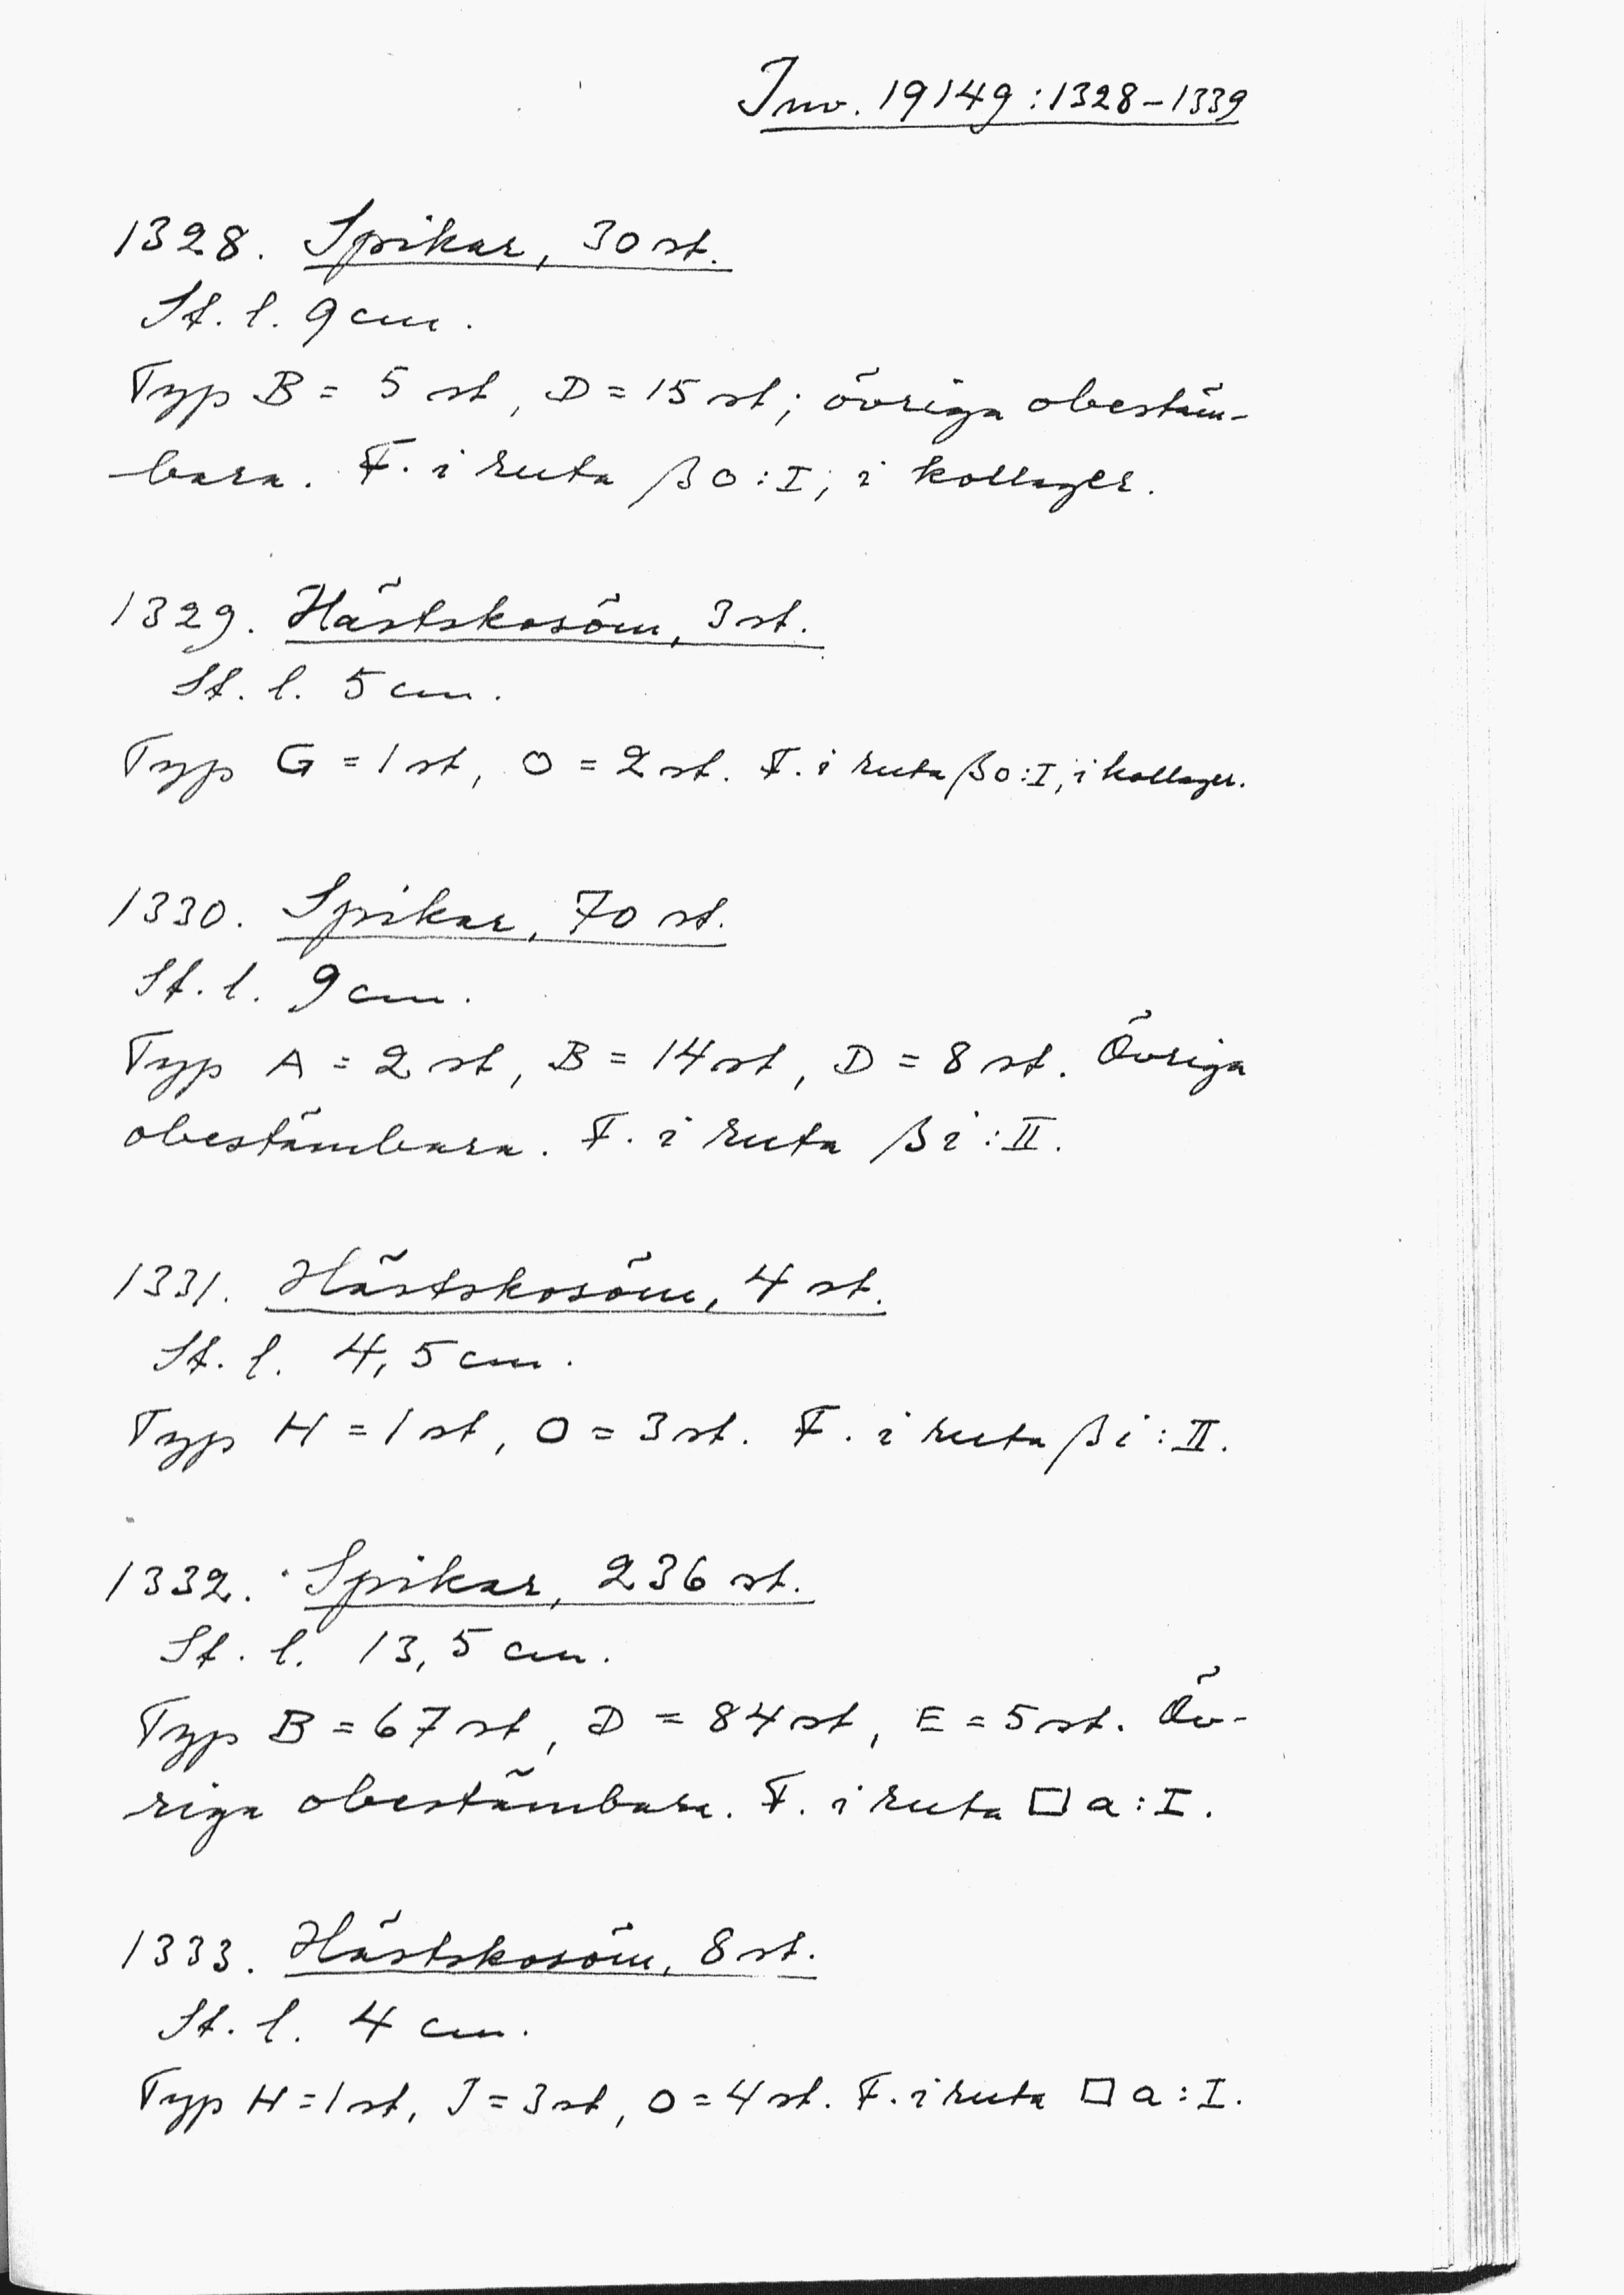 Inv. 19149:1328-1339
1328. Spikar, 30 st.
St. l. 9 cm.
Typ B = 5 st, D = 15 st; övriga obestäm-
bara. F. i ruta β o:I, i kollager.
1329. Hästskosöm, 3 st.
St. l. 5 cm.
Typ G = 1 st, O = 2 st. F. i ruta β o:I, i kollager.
1330. Spikar, 70 st.
St. l. 9 cm.
Typ A = 2 st, B = 14 st, D = 8 st. Övriga
obestämbara. F. i ruta β i:II.
1331. Hästskosöm, 4 st.
St. l. 4,5 cm.
Typ H = 1 st, O = 3 st. F. i ruta β i:II.
1332. Spikar, 236 st.
St. l. 13,5 cm.
Typ B = 67 st, D = 84 st, E = 5 st. Öv-
riga obestämbara. F. i ruta □ a:I.
1333. Hästskosöm, 8 st.
St. l. 4 cm.
Typ H = 1 st, J = 3 st, O = 4 st. F. i ruta □ a:I.